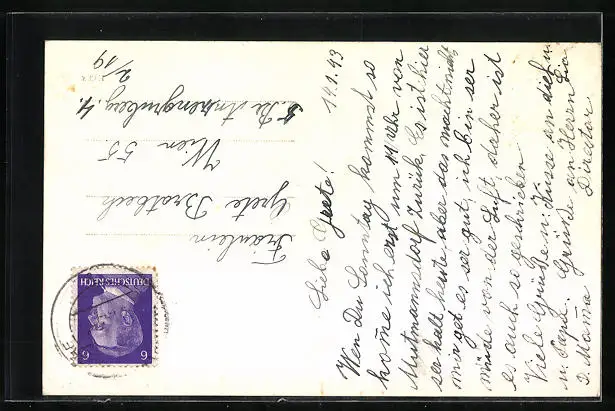 19.1.43
Liebe Grete!
Wen Du Sonntag kommst so
kome ich erst um 11 Uhr von
Mutmannsdorf zurück. Es ist hier
ser kalt heute aber das macht nichts
mir get es ser gut, ich bin ser
müde von der Luft, daher ist
es auch so geschrieben
Viele Grüße u. Küsse an dich u.
u. Papa. Grüße an Herrn
D. Mama Direktor
Fräulein
Grete
Wien 55.
4.
2/19
DEUTSCHES REICH
6 6